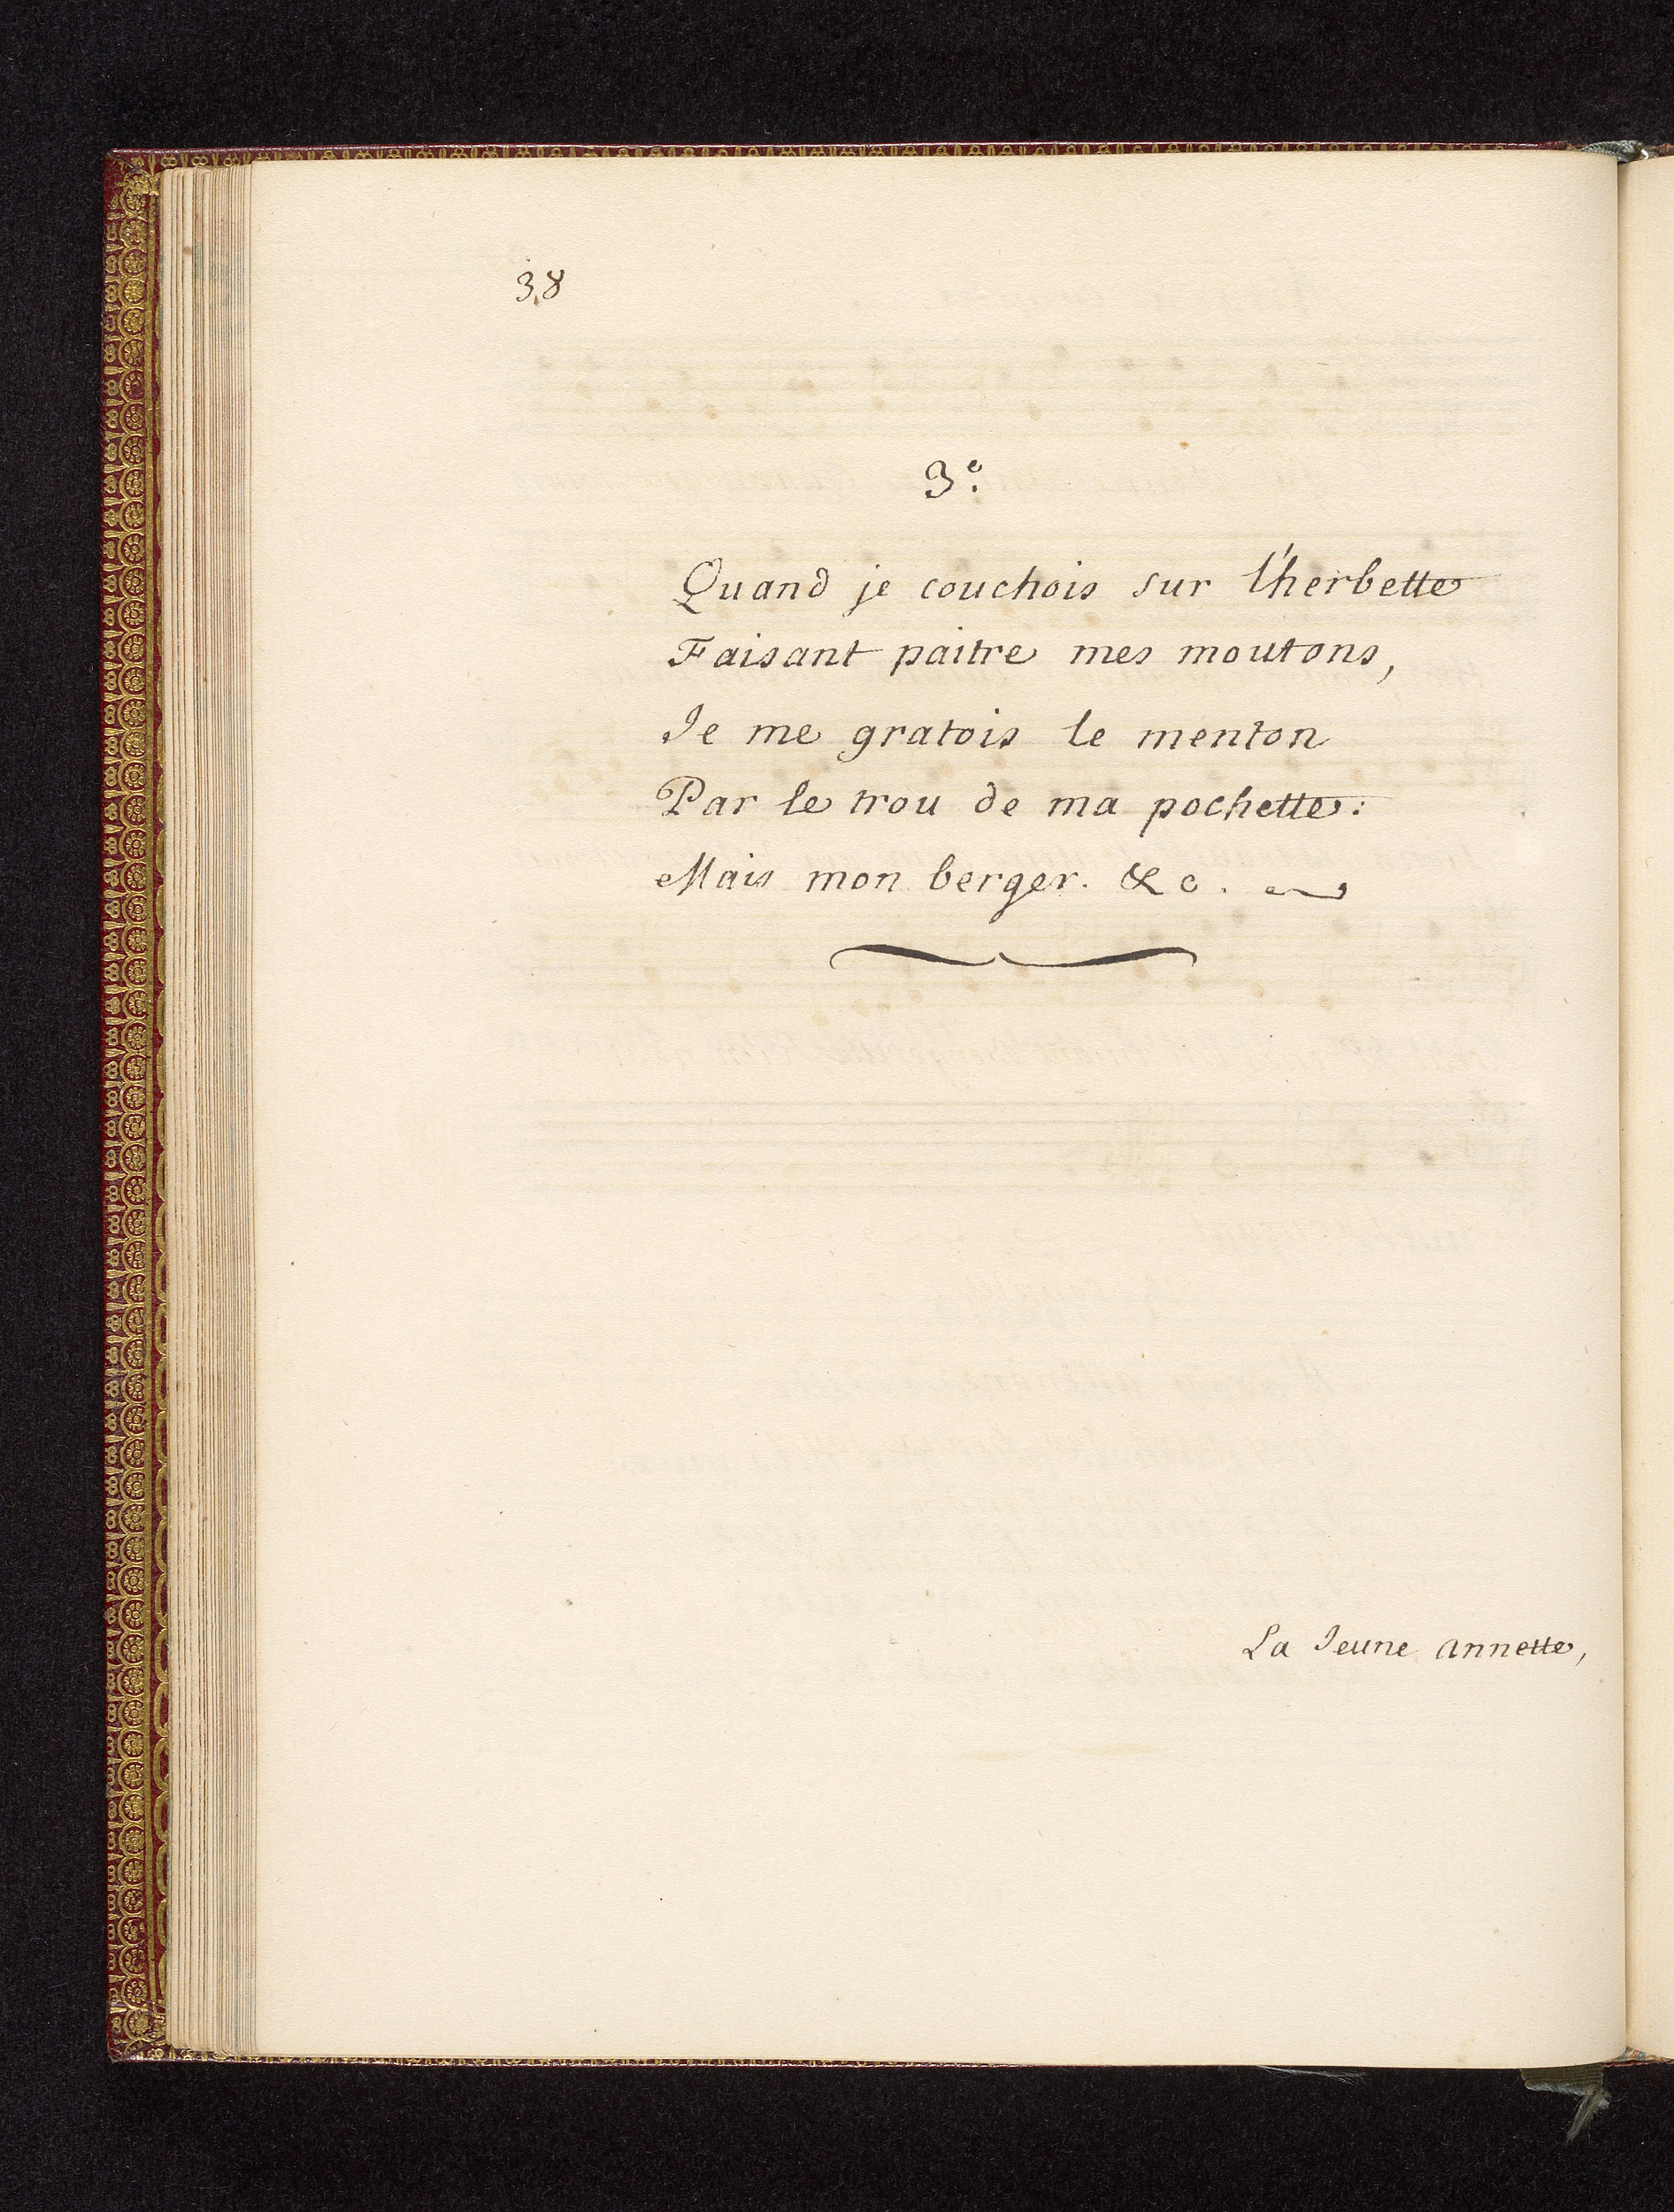 38
3e.
Quand je couchois sur l'herbette
Faisant paitre mes moutons,
Je me gratois le menton
Par le trou de ma pochette:
Mais mon berger. &c.
La Jeune Annette,